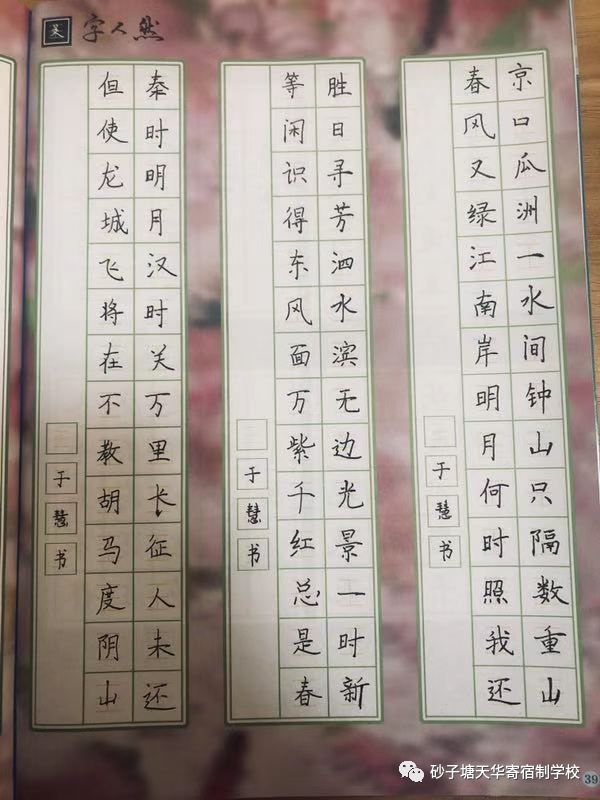 吴 字人然
京口瓜洲一水间钟山只隔数重山
春风又绿江南岸明月何时照我还
于慧书
胜日寻芳泗水滨无边光景一时新
等闲识得东风面万紫千红总是春
于慧书
秦时明月汉时关万里长征人未还
但使龙城飞将在不教胡马度阴山
于慧书
砂子塘天华寄宿制学校
39